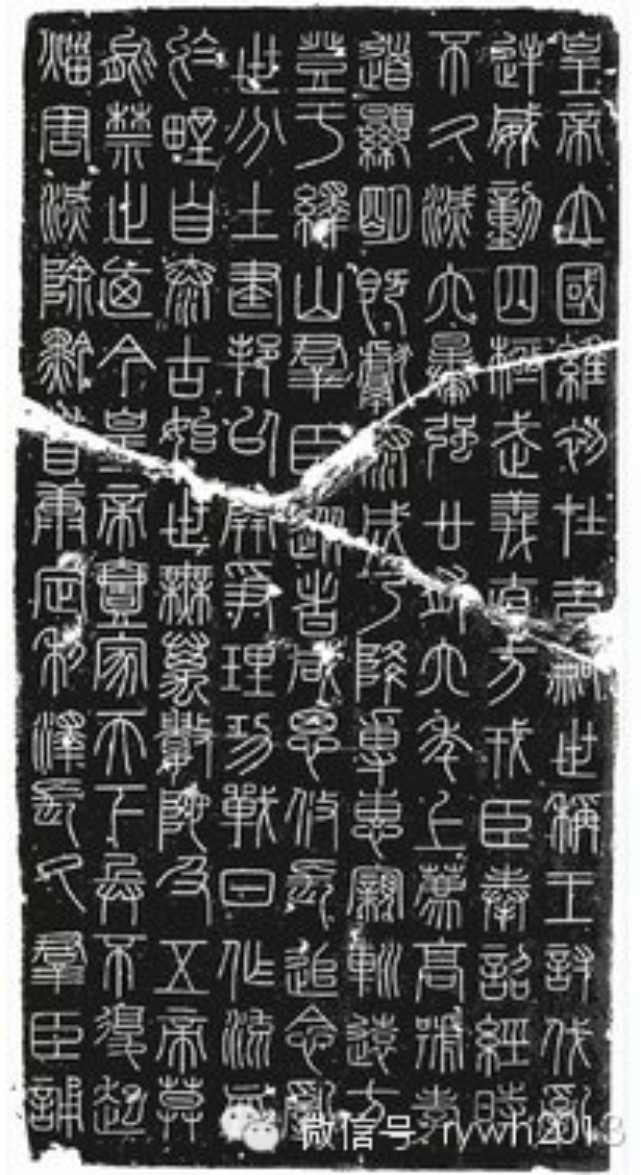 皇帝立國維初在昔嗣世稱王討伐亂
逆威動四極武義直方戎臣奉詔經時
不久滅六暴強廿有六年上薦高號孝
道顯明既獻泰成乃降尃惠親𨊠遠方
登于繹山群臣從者咸思攸長追念亂
世分土建邦以開爭理功戰日作流血
於野自泰古始世無萬數陀及五帝莫
能禁止迺今皇帝壹家天下兵不復起
災害滅除黔首康定利澤長久群臣誦
微信号: rywh2013